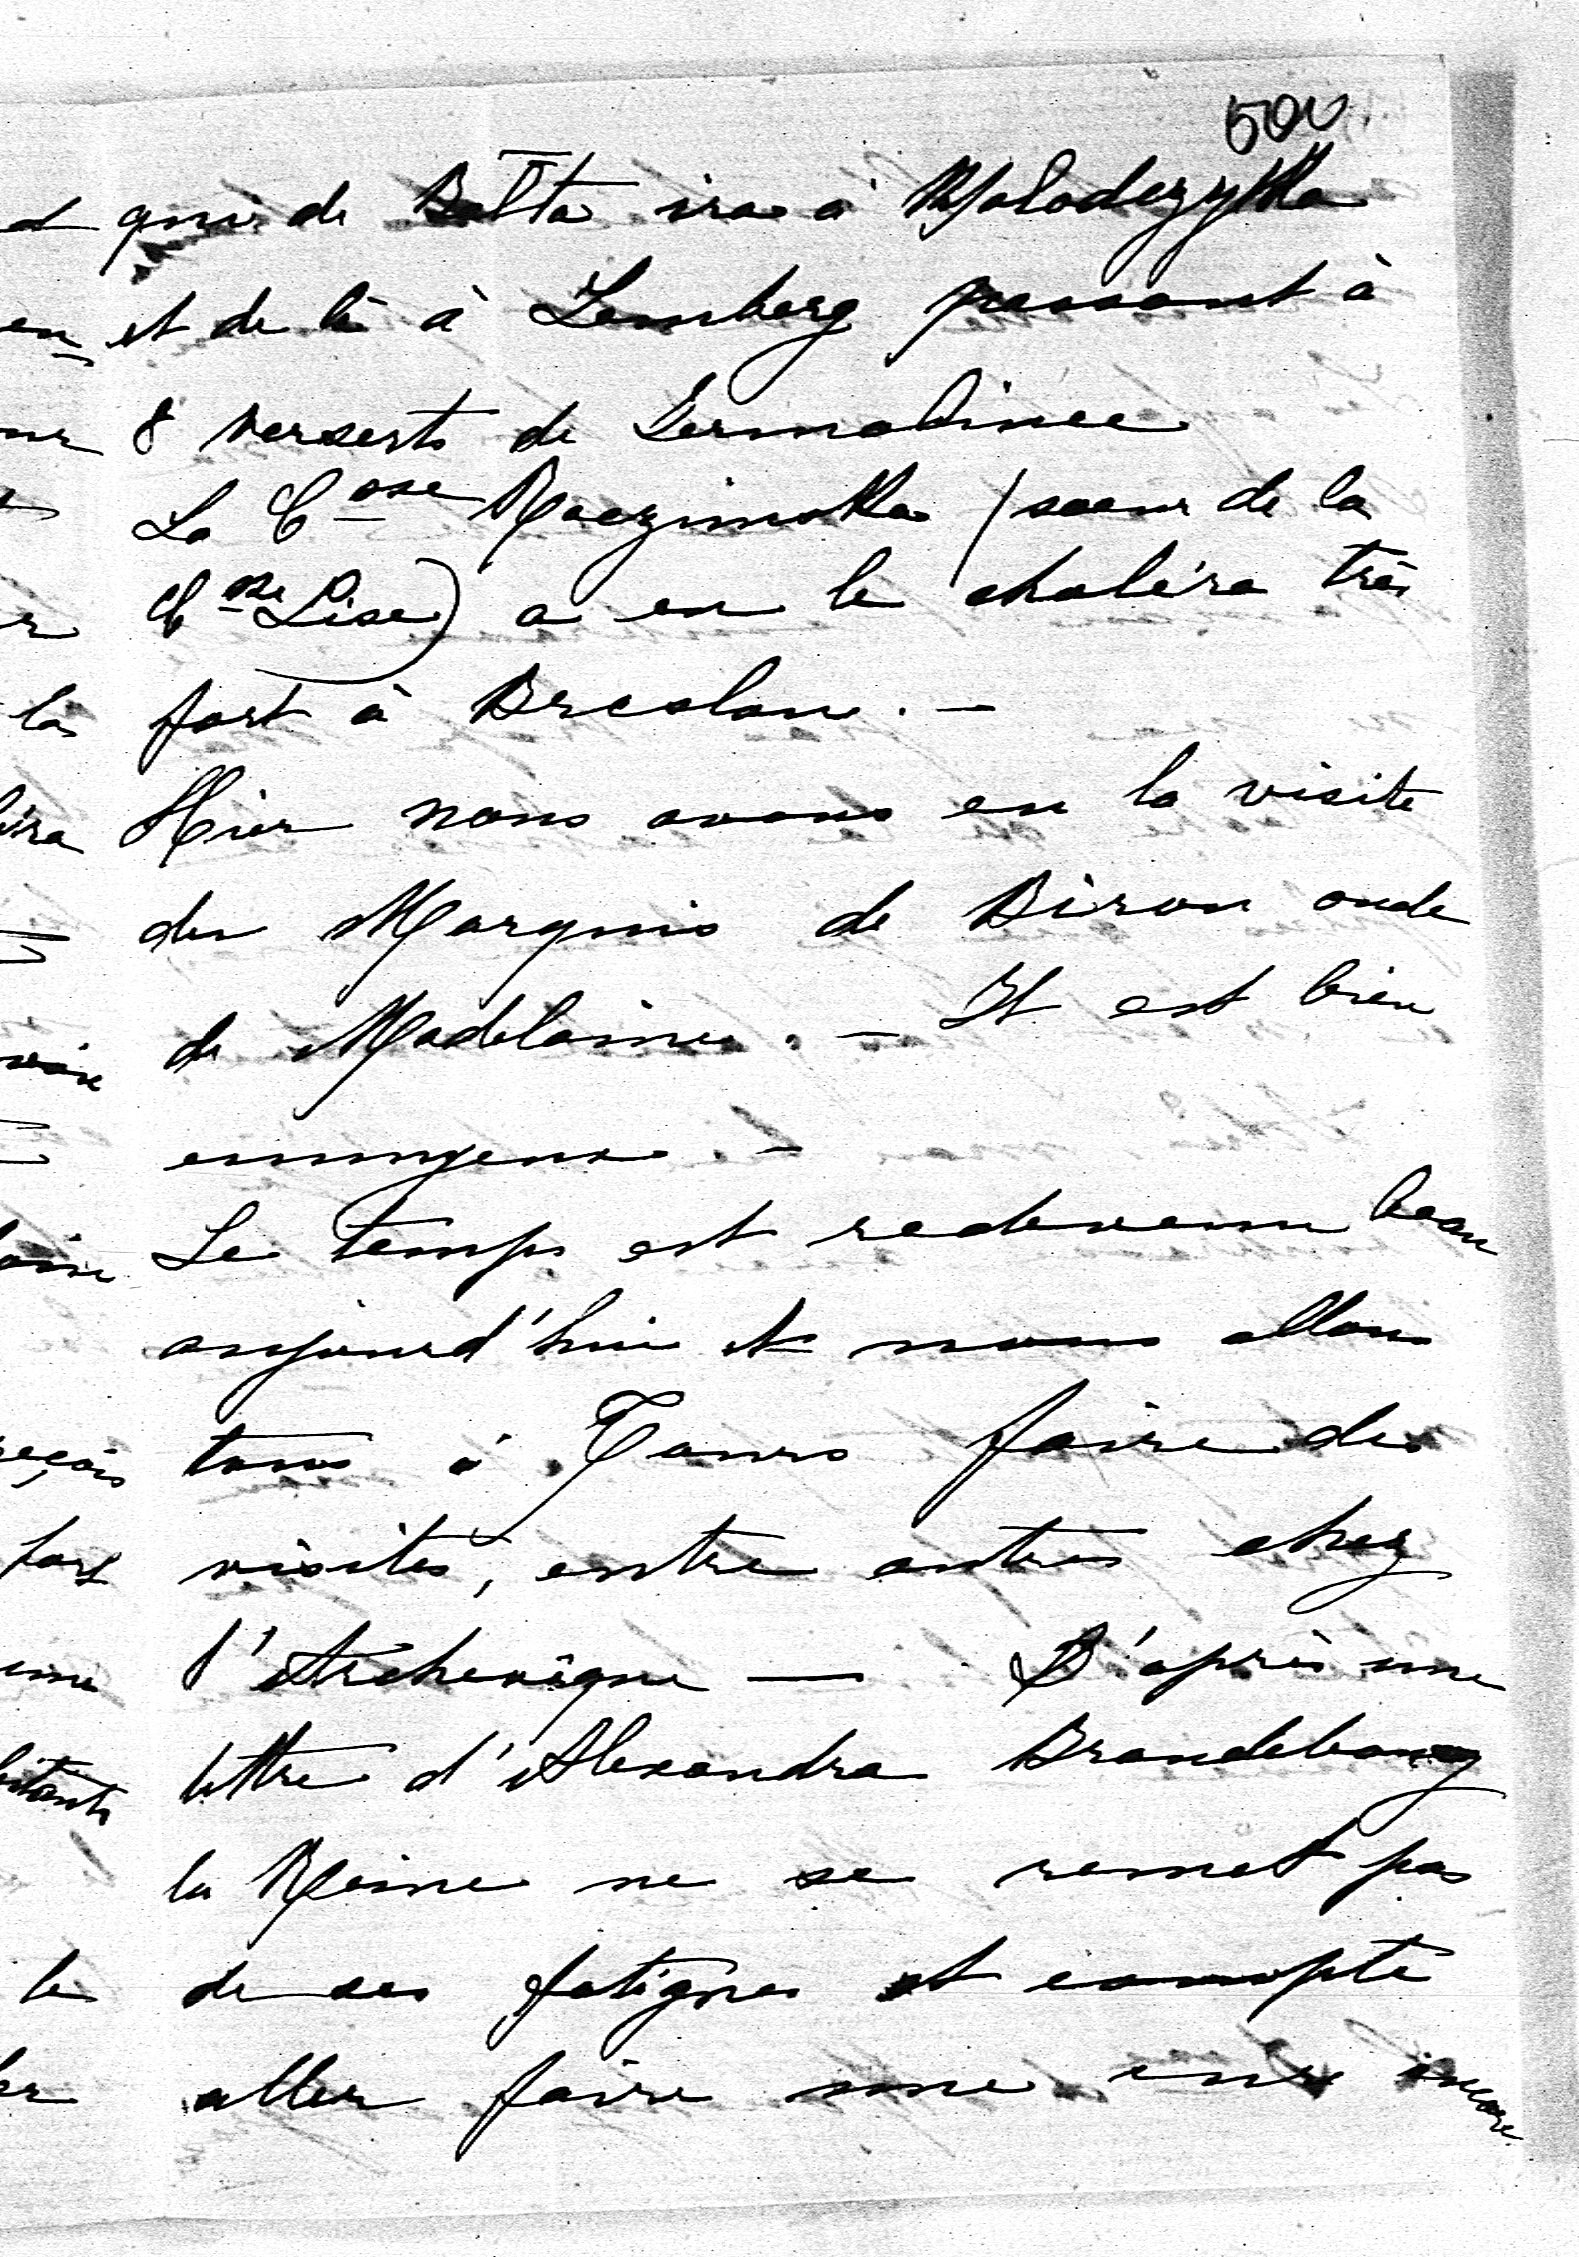 500.
qui de Balta ira à Molodezytka
et de là à Lemberg passant à
8 verserts de Germalince
La Csse Raczinska (soeur de la
Csse Lise) a eu le choléra très
fort à Breslau. —
Hier nous avons eu la visite
du Marquis de Biron oncle
de Madelaine. — Il est bien
ennuyeux. —
Le temps est redevenu beau
aujourd'hui et nous allons
tous à Tours faire des
visites, entre autres chez
l'Archevêque — D'après une
lettre d'Alexandra Brandebourg
la Reine ne se remet pas
de ses fatigues et compte
aller faire une cure encore